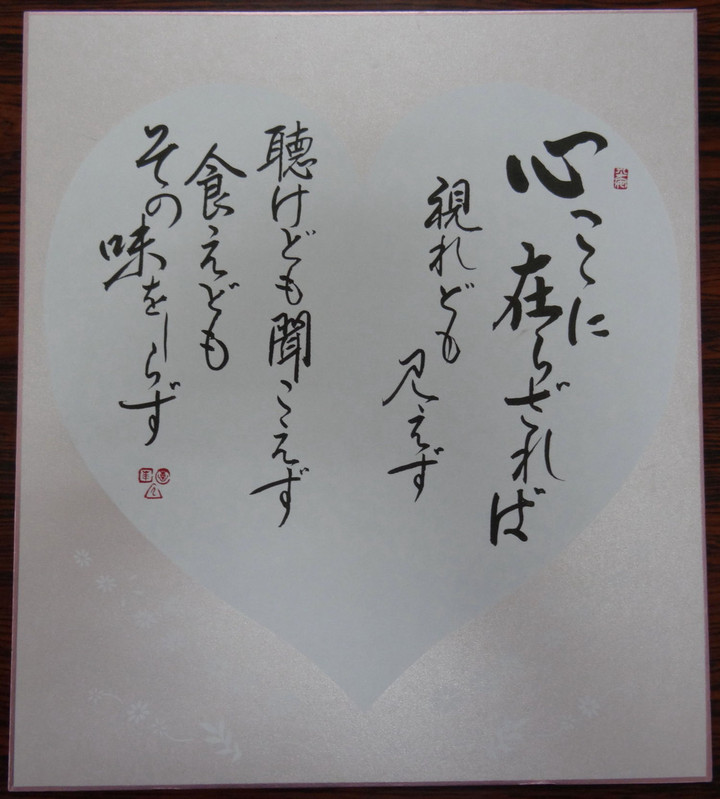 心ここに
在らざれば
視れども
見えず
聴けども聞こえず
食えども
その味をしらず